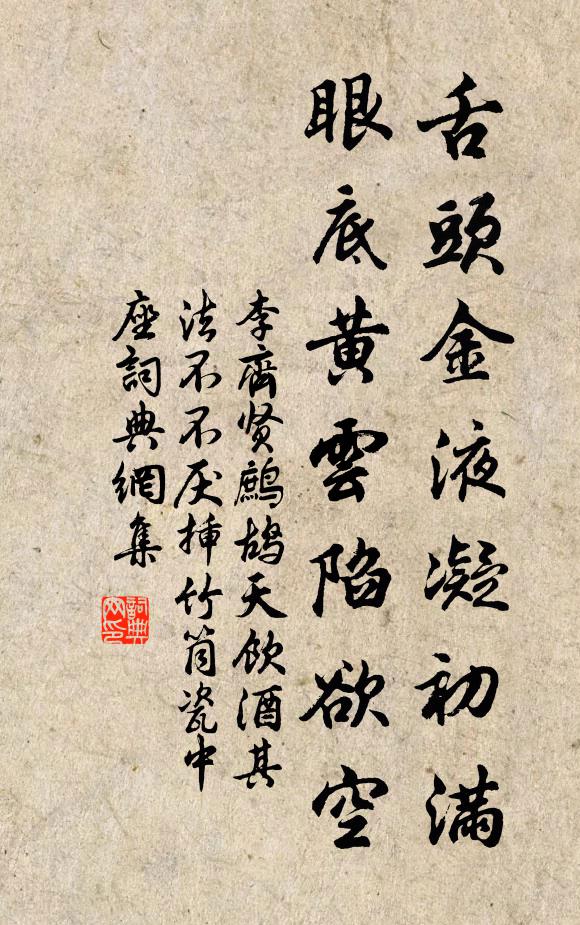 舌頭金液凝初滿
眼底黃雲陷欲空
李齊贤鷓鴣天飲酒其
法不不厌挿竹筒瓷中
座詞典網集
詞典網印